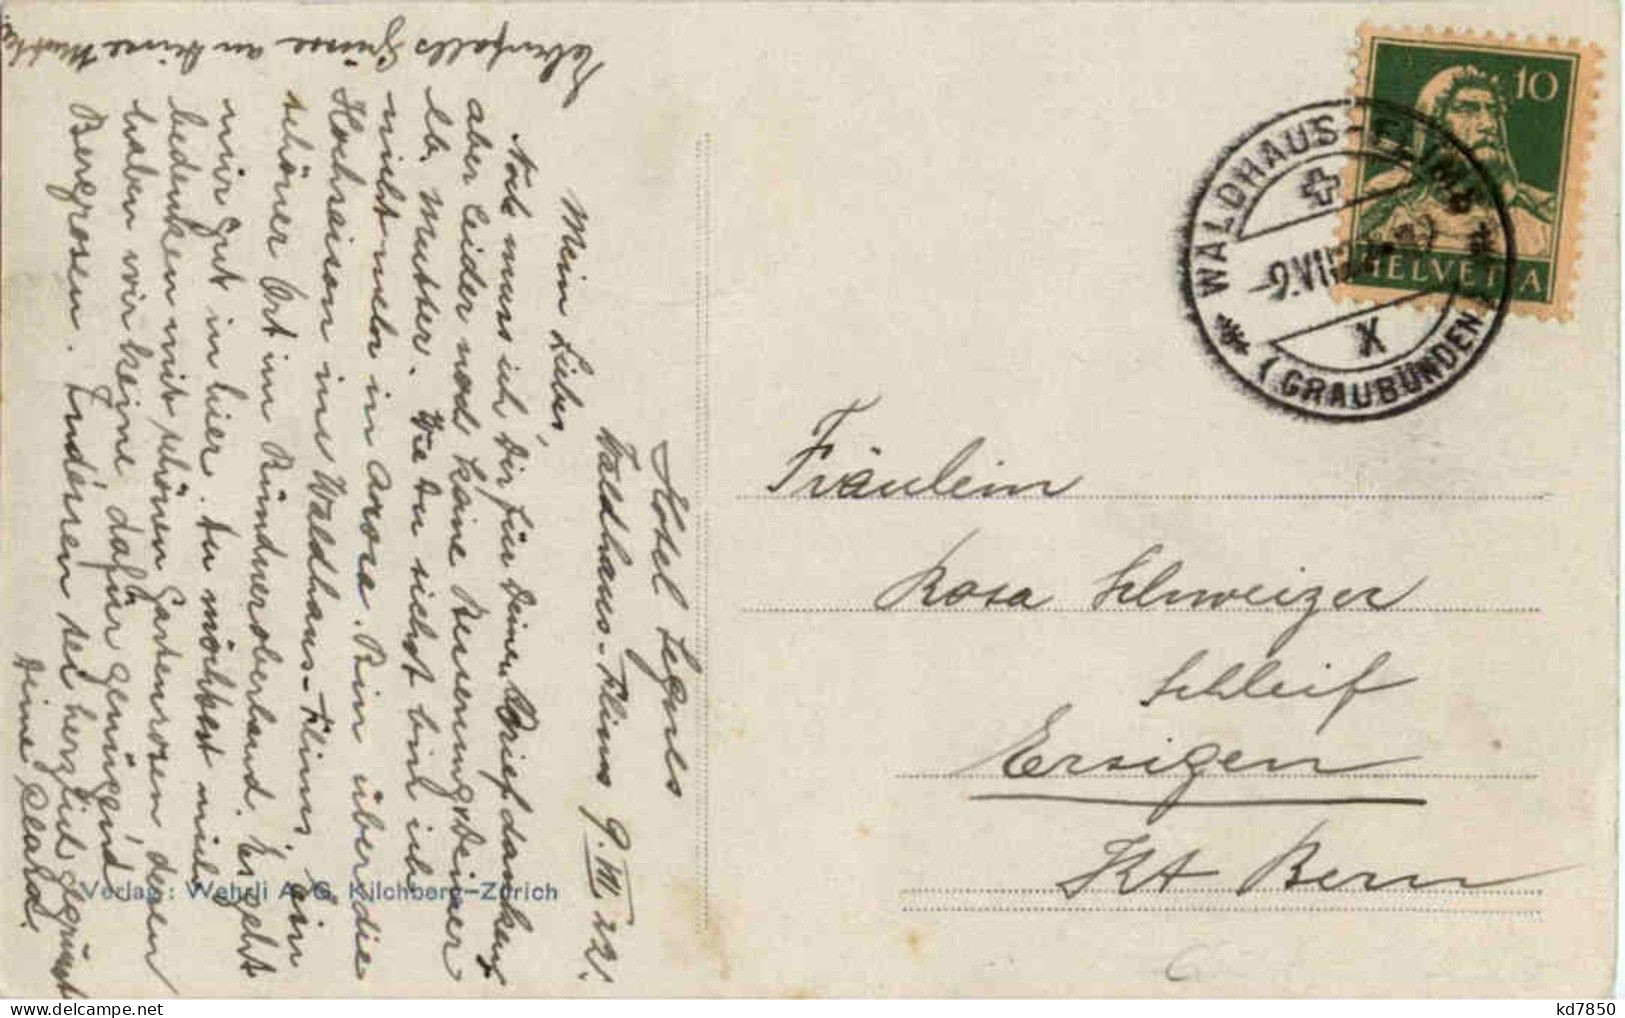 Hotel Segnes
Waldhaus-Flims 9. VII. 22.
Mein Liebes,
Noch muss ich Dir für Deinen Brief danken,
aber leider noch keine Besserung deiner
lb. Mutter. Wie Du siehst bin ich
nicht mehr in Arosa. Bin über die
Hochsaison ins Waldhaus-Flims, ein
schöner Ort im Bündneroberland. Es geht
mir gut im hier. Du möchtest mich
bedenken mit schönen Gartenrosen, denen
haben wir keine dafür genügend
Bergrosen. Indessen sei herzlich gegrüsst
Deine Clara.
Ebenfalls Grüsse an Deine Mutter
10
HELVETIA
WALDHAUS-FLIMS
-9.VII.
X
(GRAUBÜNDEN)
Fräulein
Rosa Schweizer
Schleif
Ersigen
Kt Bern
Verlag: Wehrli A. G. Kilchberg-Zürich
kd7850